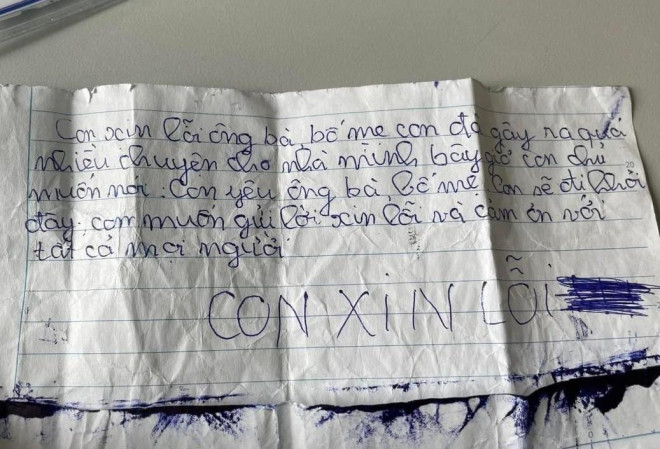 Con xin lỗi ông bà bố mẹ con đã gây ra quá
nhiều chuyện cho nhà mình, bây giờ con chu
muốn nơi. Con yêu ông bà, bố mẹ. Con sẽ đi khỏi
đây. con muốn gửi lời xin lỗi và cảm ơn với
tất cả mọi người
CON XIN LỖI